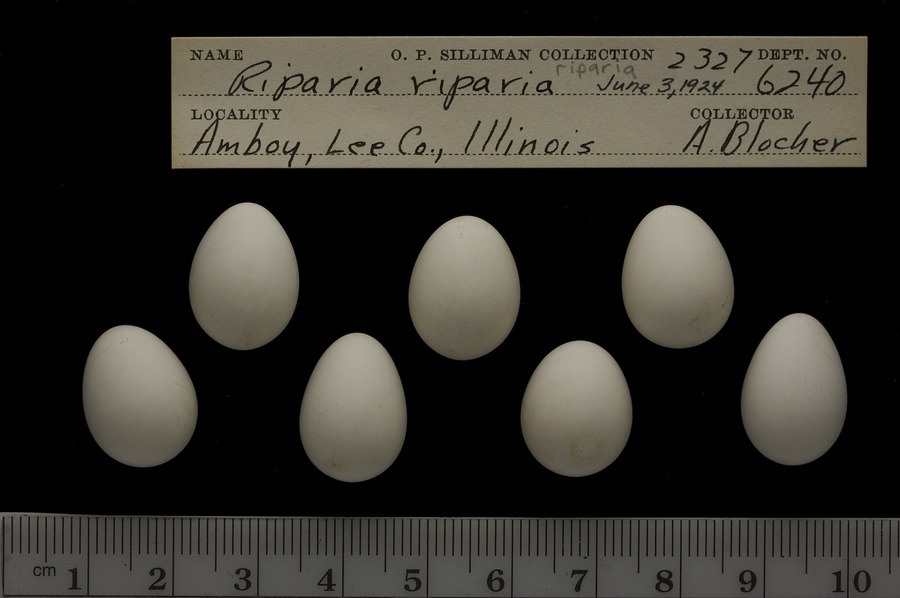 NAME O. P. SILLIMAN COLLECTION 2327 DEPT. NO.
Riparia riparia riparia June 3, 1924 6240
LOCALITY COLLECTOR
Amboy, Lee Co., Illinois A. Blocher
cm 1 2 3 4 5 6 7 8 9 10